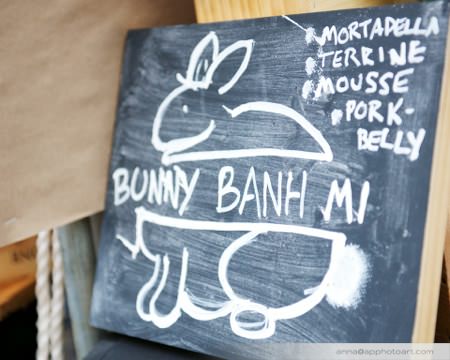 MORTADELLA
TERRINE
MOUSSE
PORK-
BELLY
BUNNY BANH MI
anna@apphotoart.com